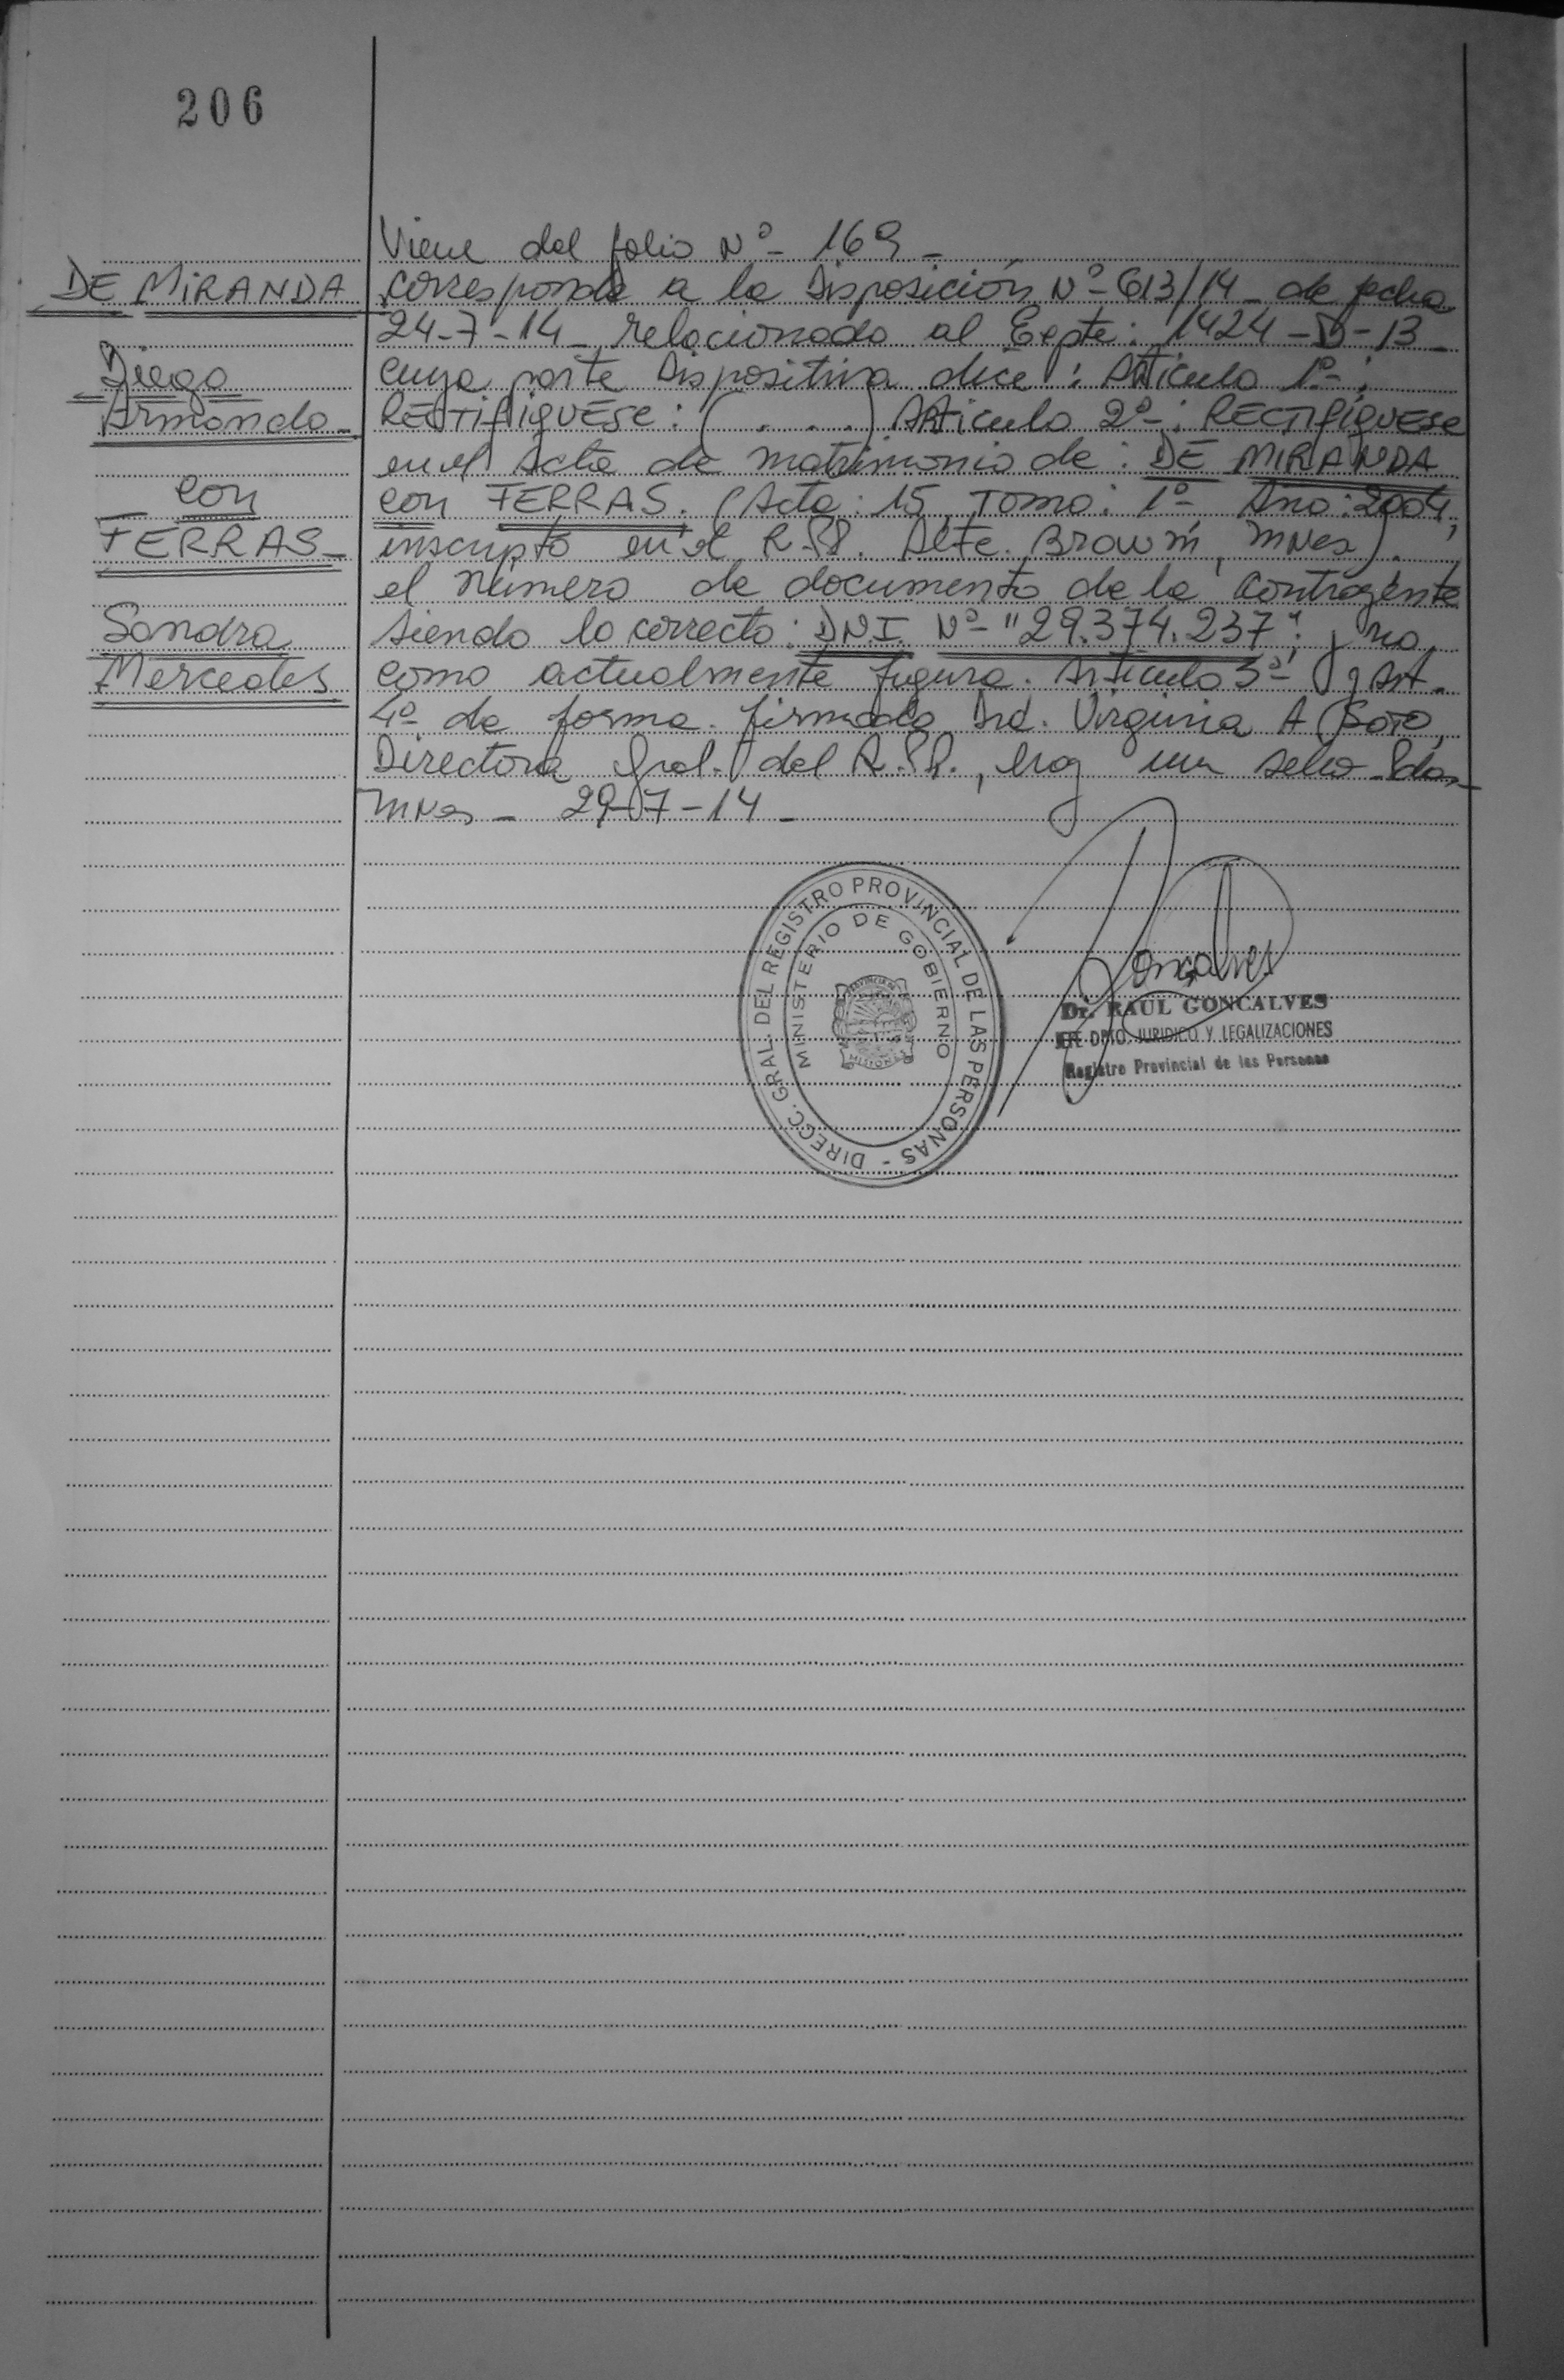 206
DE MIRANDA
Diego
Armando
con
FERRAS
Sandra
Mercedes
Viene del folio Nº 169
corresponde a la Disposición Nº 613/14 de fecha
24-7-14 relacionado al Expte: 1424-D-13
cuya parte dispositiva dice: Articulo 1º:
RECTIFIQUESE: (...) Articulo 2º: RECTIFIQUESE
en el Acta de matrimonio de: DE MIRANDA
con FERRAS. (Acta: 15, Tomo: 1º Año: 2004,
inscripto en el R.PP. Alte. Brown, Mnes).
el número de documento de la contrayente
siendo lo correcto: D.N.I. Nº "29.374.237"; y no
como actualmente figura. Articulo 3º y Art.
4º de forma. firmado Virginia A.
Directora Gral. del R.PP., hay un sello. Pdas.
Mnes - 29-7-14 -
DIRECC. GRAL. DEL REGISTRO PROVINCIAL DE LAS PERSONAS -
MINISTERIO DE GOBIERNO
PROVINCIA DE
MISIONES
Dr. RAUL GONCALVES
JEFE DPTO. JURIDICO Y LEGALIZACIONES
Registro Provincial de las Personas